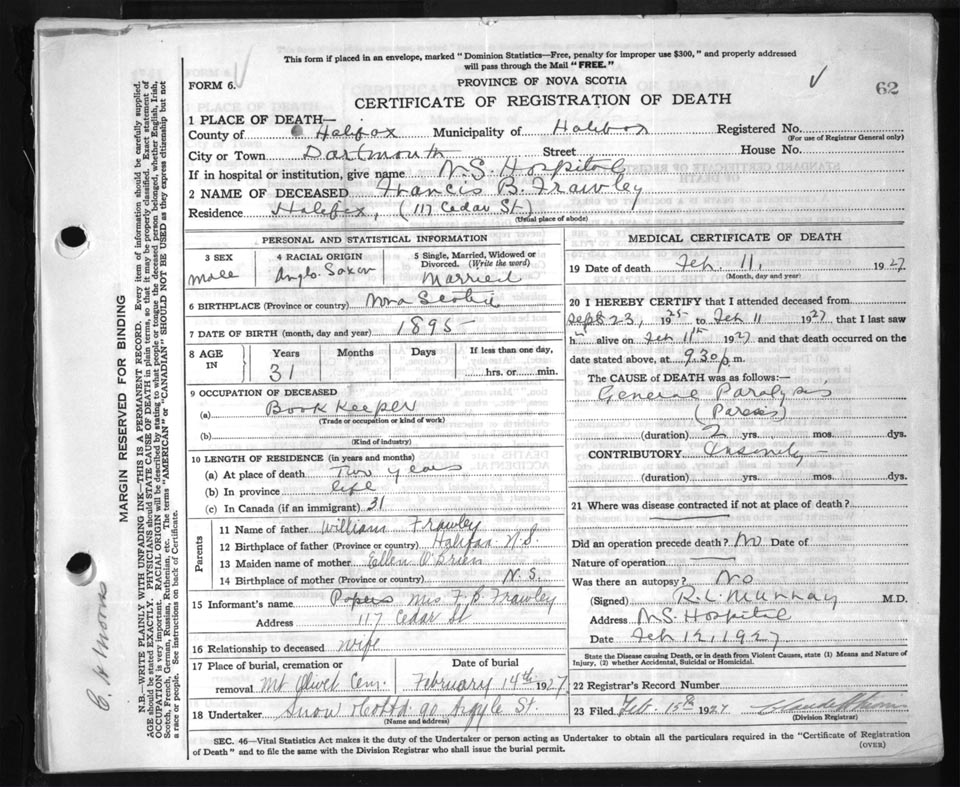 This form if placed in an envelope, marked "Dominion Statistics—Free, penalty for improper use $300," and properly addressed
will pass through the Mail "FREE."
FORM 6.
PROVINCE OF NOVA SCOTIA
62
CERTIFICATE OF REGISTRATION OF DEATH
1 PLACE OF DEATH—
County of Halifax Municipality of Halifax Registered No.
(For use of Registrar General only)
City or Town Dartmouth Street House No.
If in hospital or institution, give name N.S. Hospital
2 NAME OF DECEASED Francis B. Frawley
Residence Halifax, (117 Cedar St)
(Usual place of abode)
PERSONAL AND STATISTICAL INFORMATION
3 SEX
Male
4 RACIAL ORIGIN
Anglo. Saxon
5 Single, Married, Widowed or
Divorced. (Write the word)
Married
6 BIRTHPLACE (Province or country) Nova Scotia
7 DATE OF BIRTH (month, day and year) 1895
8 AGE IN
Years Months Days If less than one day,
31 hrs. or min.
9 OCCUPATION OF DECEASED
(a) Book Keeper
(Trade or occupation or kind of work)
(b)
(Kind of industry)
10 LENGTH OF RESIDENCE (in years and months)
(a) At place of death Two years
(b) In province life
(c) In Canada (if an immigrant) 31
Parents
11 Name of father William Frawley
12 Birthplace of father (Province or country) Halifax N.S.
13 Maiden name of mother Ellen O'Brien
14 Birthplace of mother (Province or country) N.S.
15 Informant's name Papers Mrs F. B. Frawley
Address 117 Cedar St
16 Relationship to deceased wife
17 Place of burial, cremation or Date of burial
removal Mt Olivet Cem. February 14th 1927
18 Undertaker Snow & Co Ltd 90 Argyle St.
(Name and address)
MEDICAL CERTIFICATE OF DEATH
19 Date of death Feb. 11, 1927
(Month, day and year)
20 I HEREBY CERTIFY that I attended deceased from
Sept 23, 1925 to Feb 11 1927 that I last saw
him alive on Feb 11th 1927 and that death occurred on the
date stated above, at 9.30 p. m.
The CAUSE OF DEATH was as follows:—
General Paralysis
(Paresis)
(duration) 2 yrs. mos. dys.
CONTRIBUTORY Insanity
(duration) yrs. mos. dys.
21 Where was disease contracted if not at place of death?
Did an operation precede death? No Date of
Nature of operation
Was there an autopsy? No
(Signed) R.L. Murray M.D.
Address N.S. Hospital
Date Feb 12, 1927
State the Disease causing Death, or in death from Violent Causes, state (1) Means and Nature of
Injury, (2) whether Accidental, Suicidal or Homicidal.
22 Registrar's Record Number
23 Filed Feb. 15th 1927
(Division Registrar)
SEC. 46—Vital Statistics Act makes it the duty of the Undertaker or person acting as Undertaker to obtain all the particulars required in the "Certificate of Registration
of Death" and to file the same with the Division Registrar who shall issue the burial permit.
(OVER)
MARGIN RESERVED FOR BINDING
N.B.—WRITE PLAINLY WITH UNFADING INK—THIS IS A PERMANENT RECORD. Every item of information should be carefully supplied.
AGE should be stated EXACTLY. PHYSICIANS should STATE CAUSE OF DEATH in plain terms, so that it may be properly classified. Exact statement of
OCCUPATION is very important. RACIAL ORIGIN will be described by stating to what people or tongue the deceased person belonged, whether English, Irish,
Scotch, French, German, Russian, Ruthenian, etc. The terms "AMERICAN" or "CANADIAN" SHOULD NOT BE USED as they express citizenship but not
a race or people. See instructions on back of Certificate.